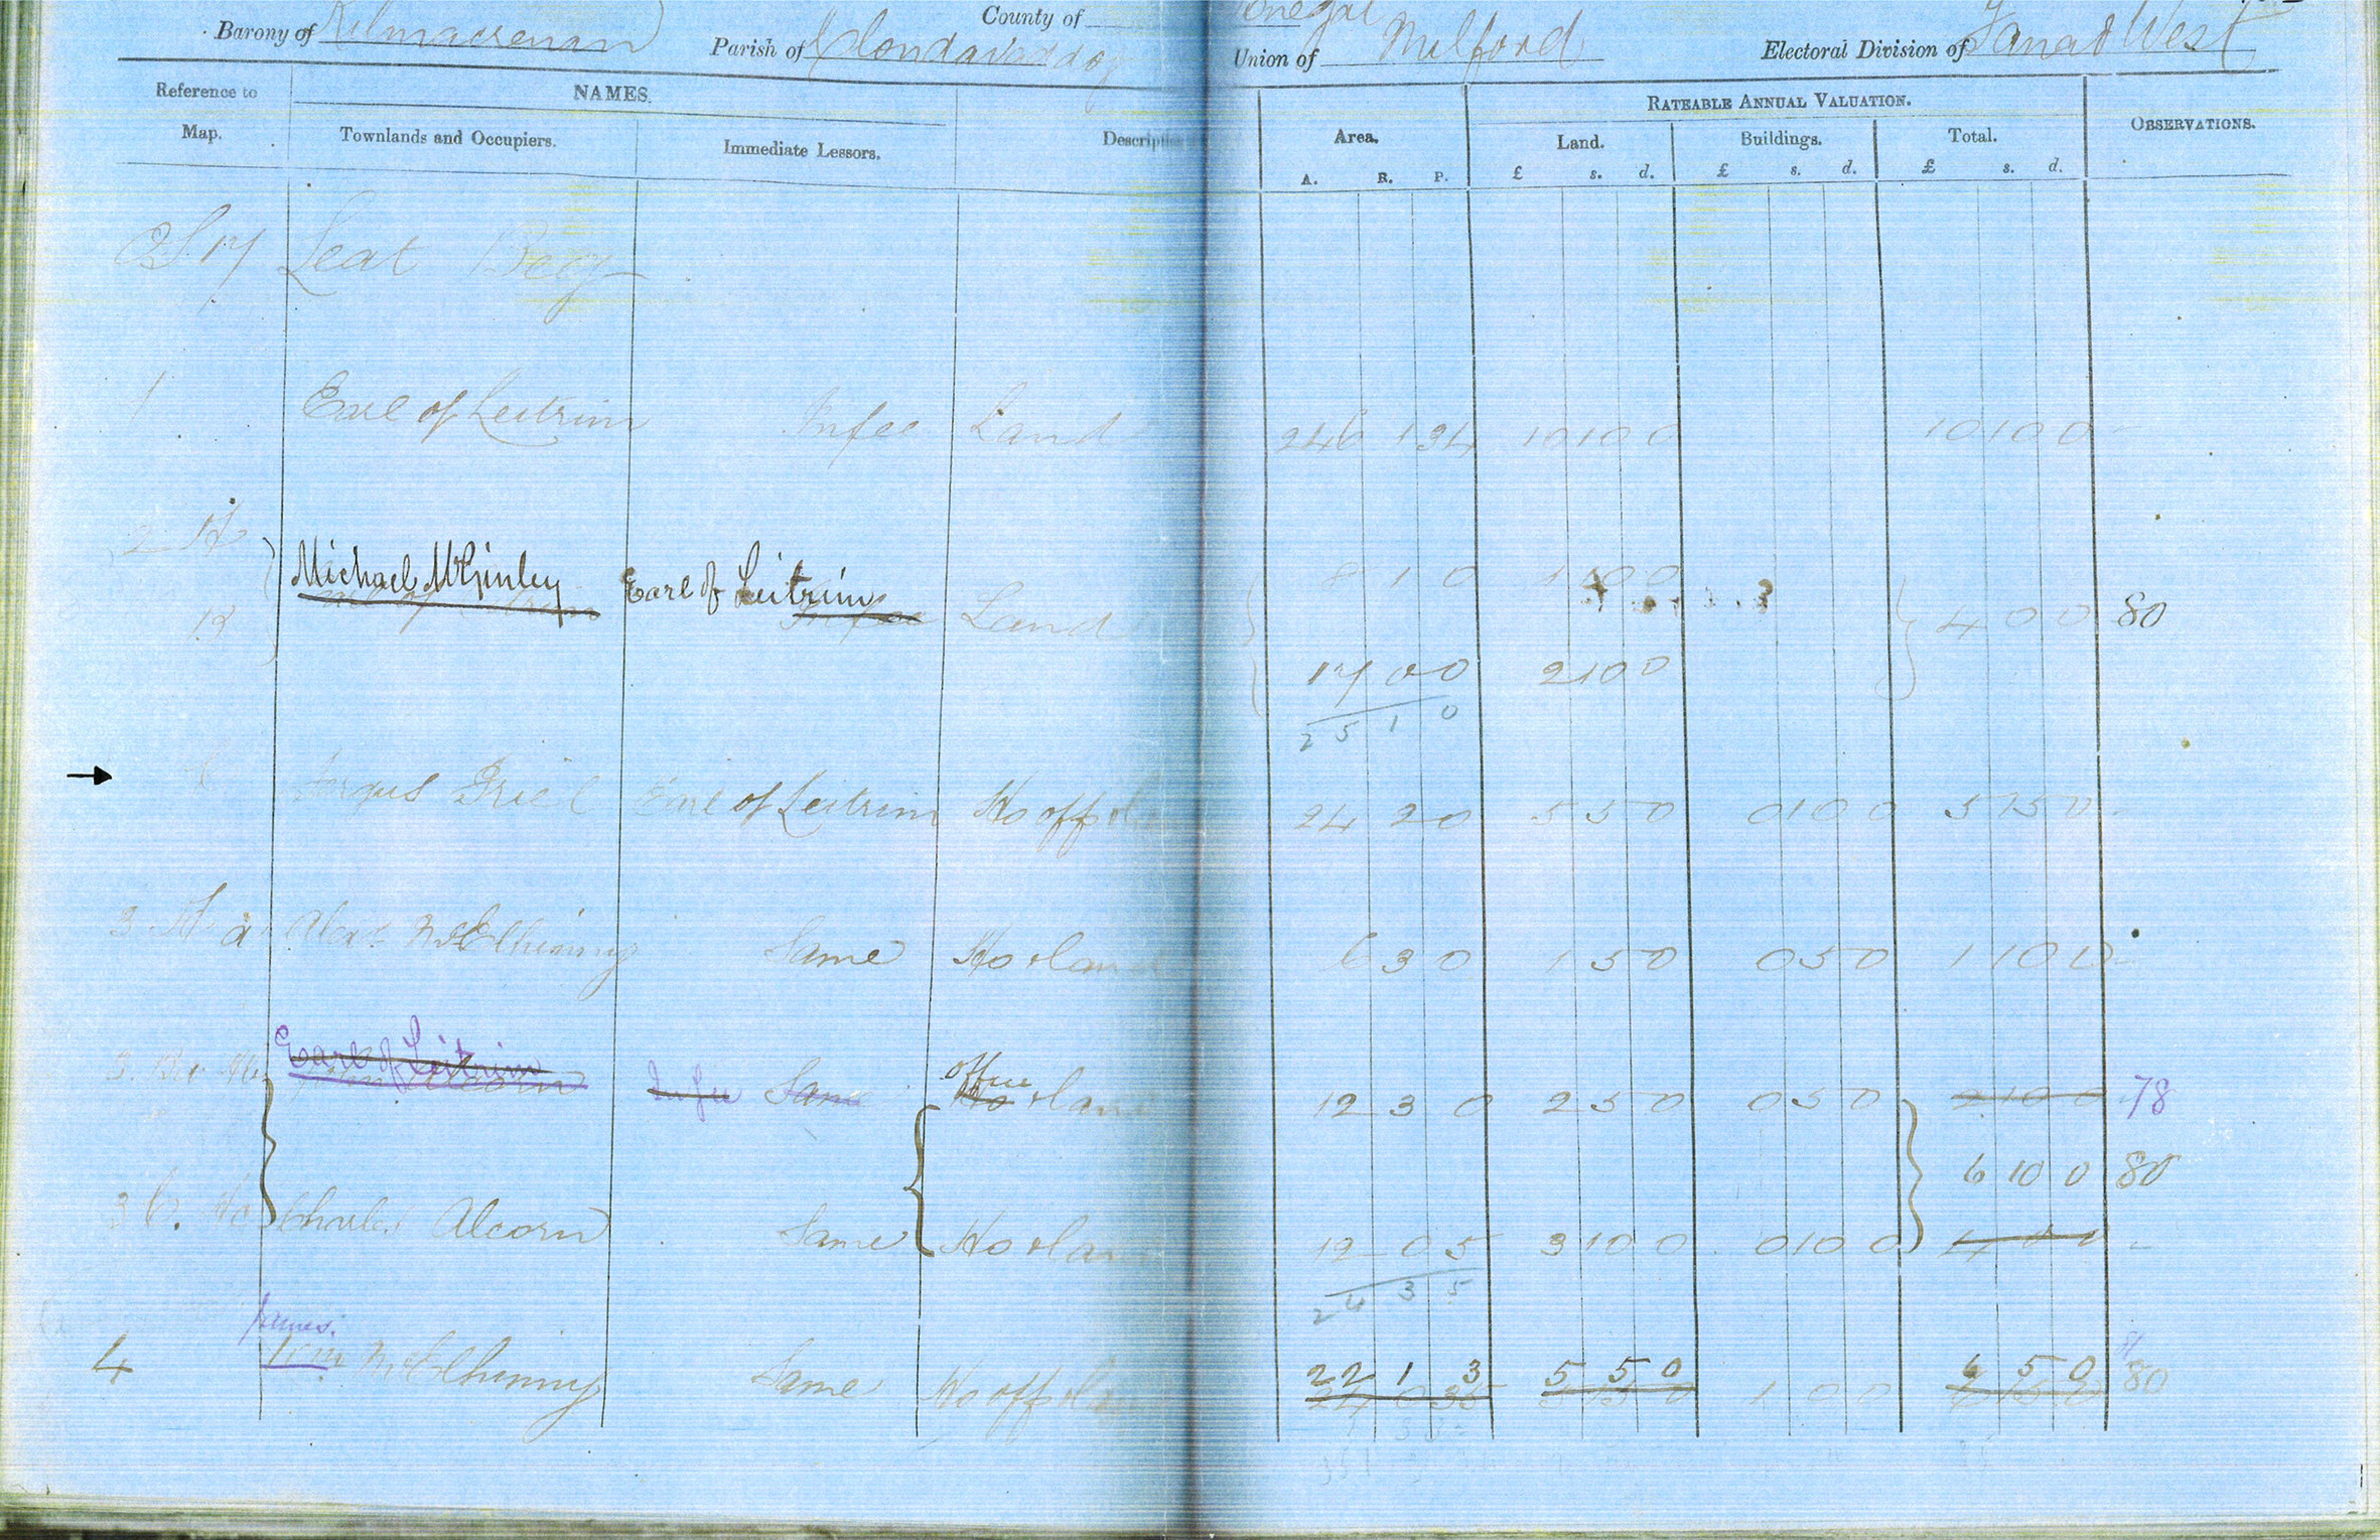 County of Donegal
Barony of Kilmacrenan Parish of Clondavaddog Union of Milford Electoral Division of Fanad West
Reference to Map. NAMES. Description Area. RATEABLE ANNUAL VALUATION. OBSERVATIONS.
Townlands and Occupiers. Immediate Lessors. Land. Buildings. Total.
A. R. P. £ s. d. £ s. d. £ s. d.
OS 17 Leat Beg
1 Earl of Leitrim In fee Land 246 1 34 10 10 0 10 10 0
2 A Michael McGinley Earl of Leitrim 8 1 0 1 10 0
B In fee Land 4 0 0 80
17 0 0 2 10 0
25 1 0
Friel Earl of Leitrim Ho off 24 2 0 5 5 0 0 10 0 5 15 0
3 A a Alexr McElhinny Same Ho & land 6 3 0 1 5 0 0 5 0 1 10 0
Earl of Leitrim office
3 B Alcorn In fee Same Ho & land 12 3 0 2 5 0 0 5 0 2 10 0 78
6 10 0 80
3 Charles Alcorn Same Ho & land 12 0 5 3 10 0 0 10 0 4 0 0
24 3 5
James 22 1 3 5 5 0 6 5 0
4 McElhinny Same Ho off 24 0 35 5 15 0 1 0 0 6 15 0 80